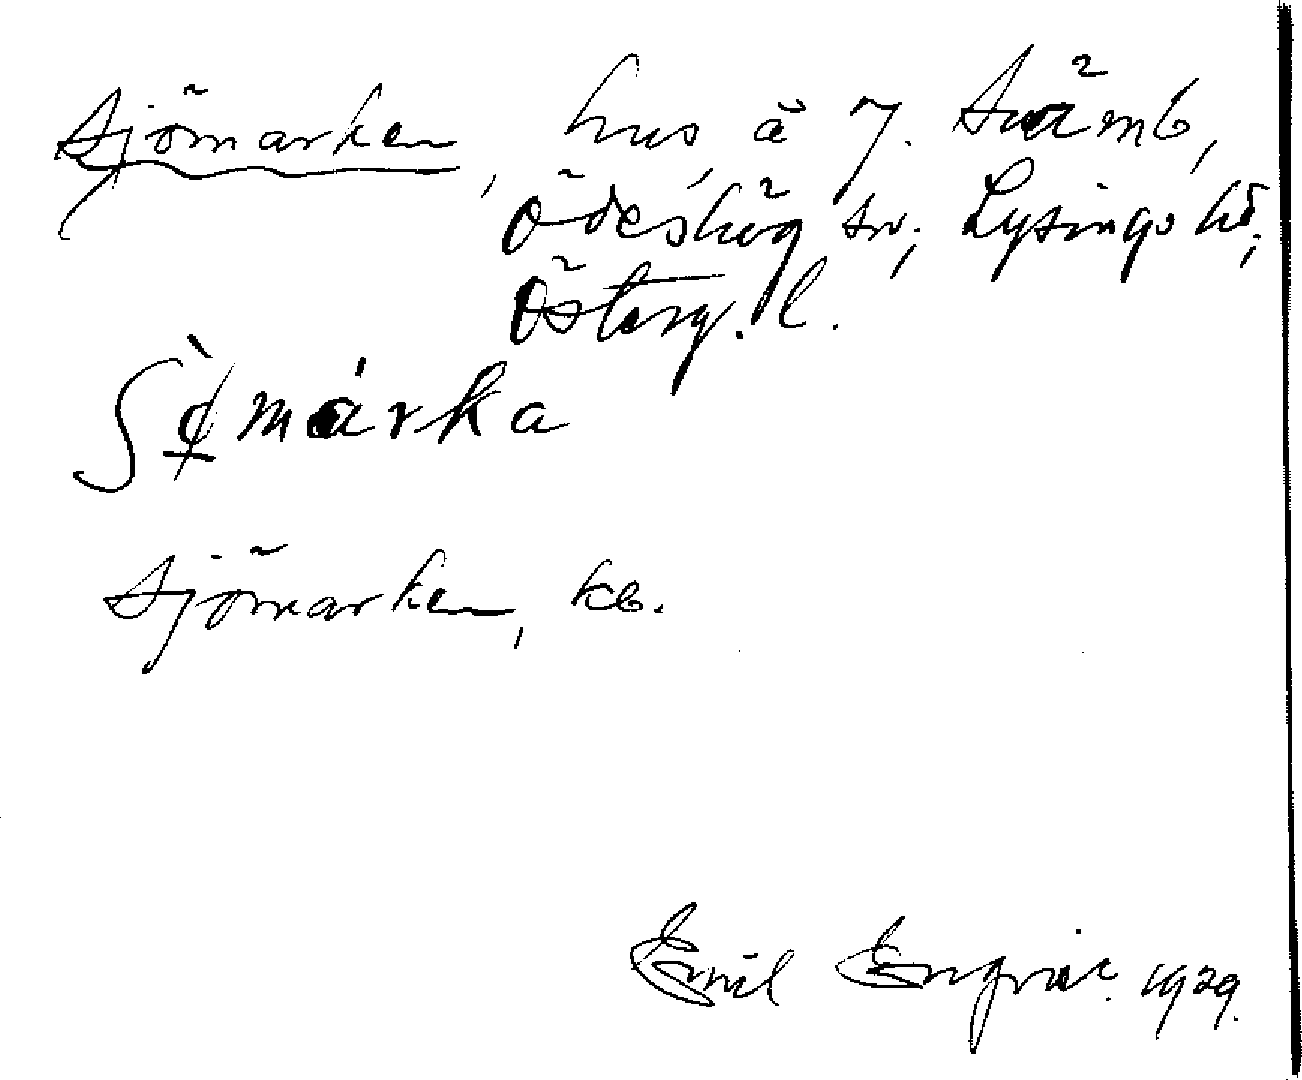 Sjömarken, hus å 7. Svämb,
Ödeshög sn; Lysings hd;
Österg. l.
sjömarken, kb.
Emil 1929.